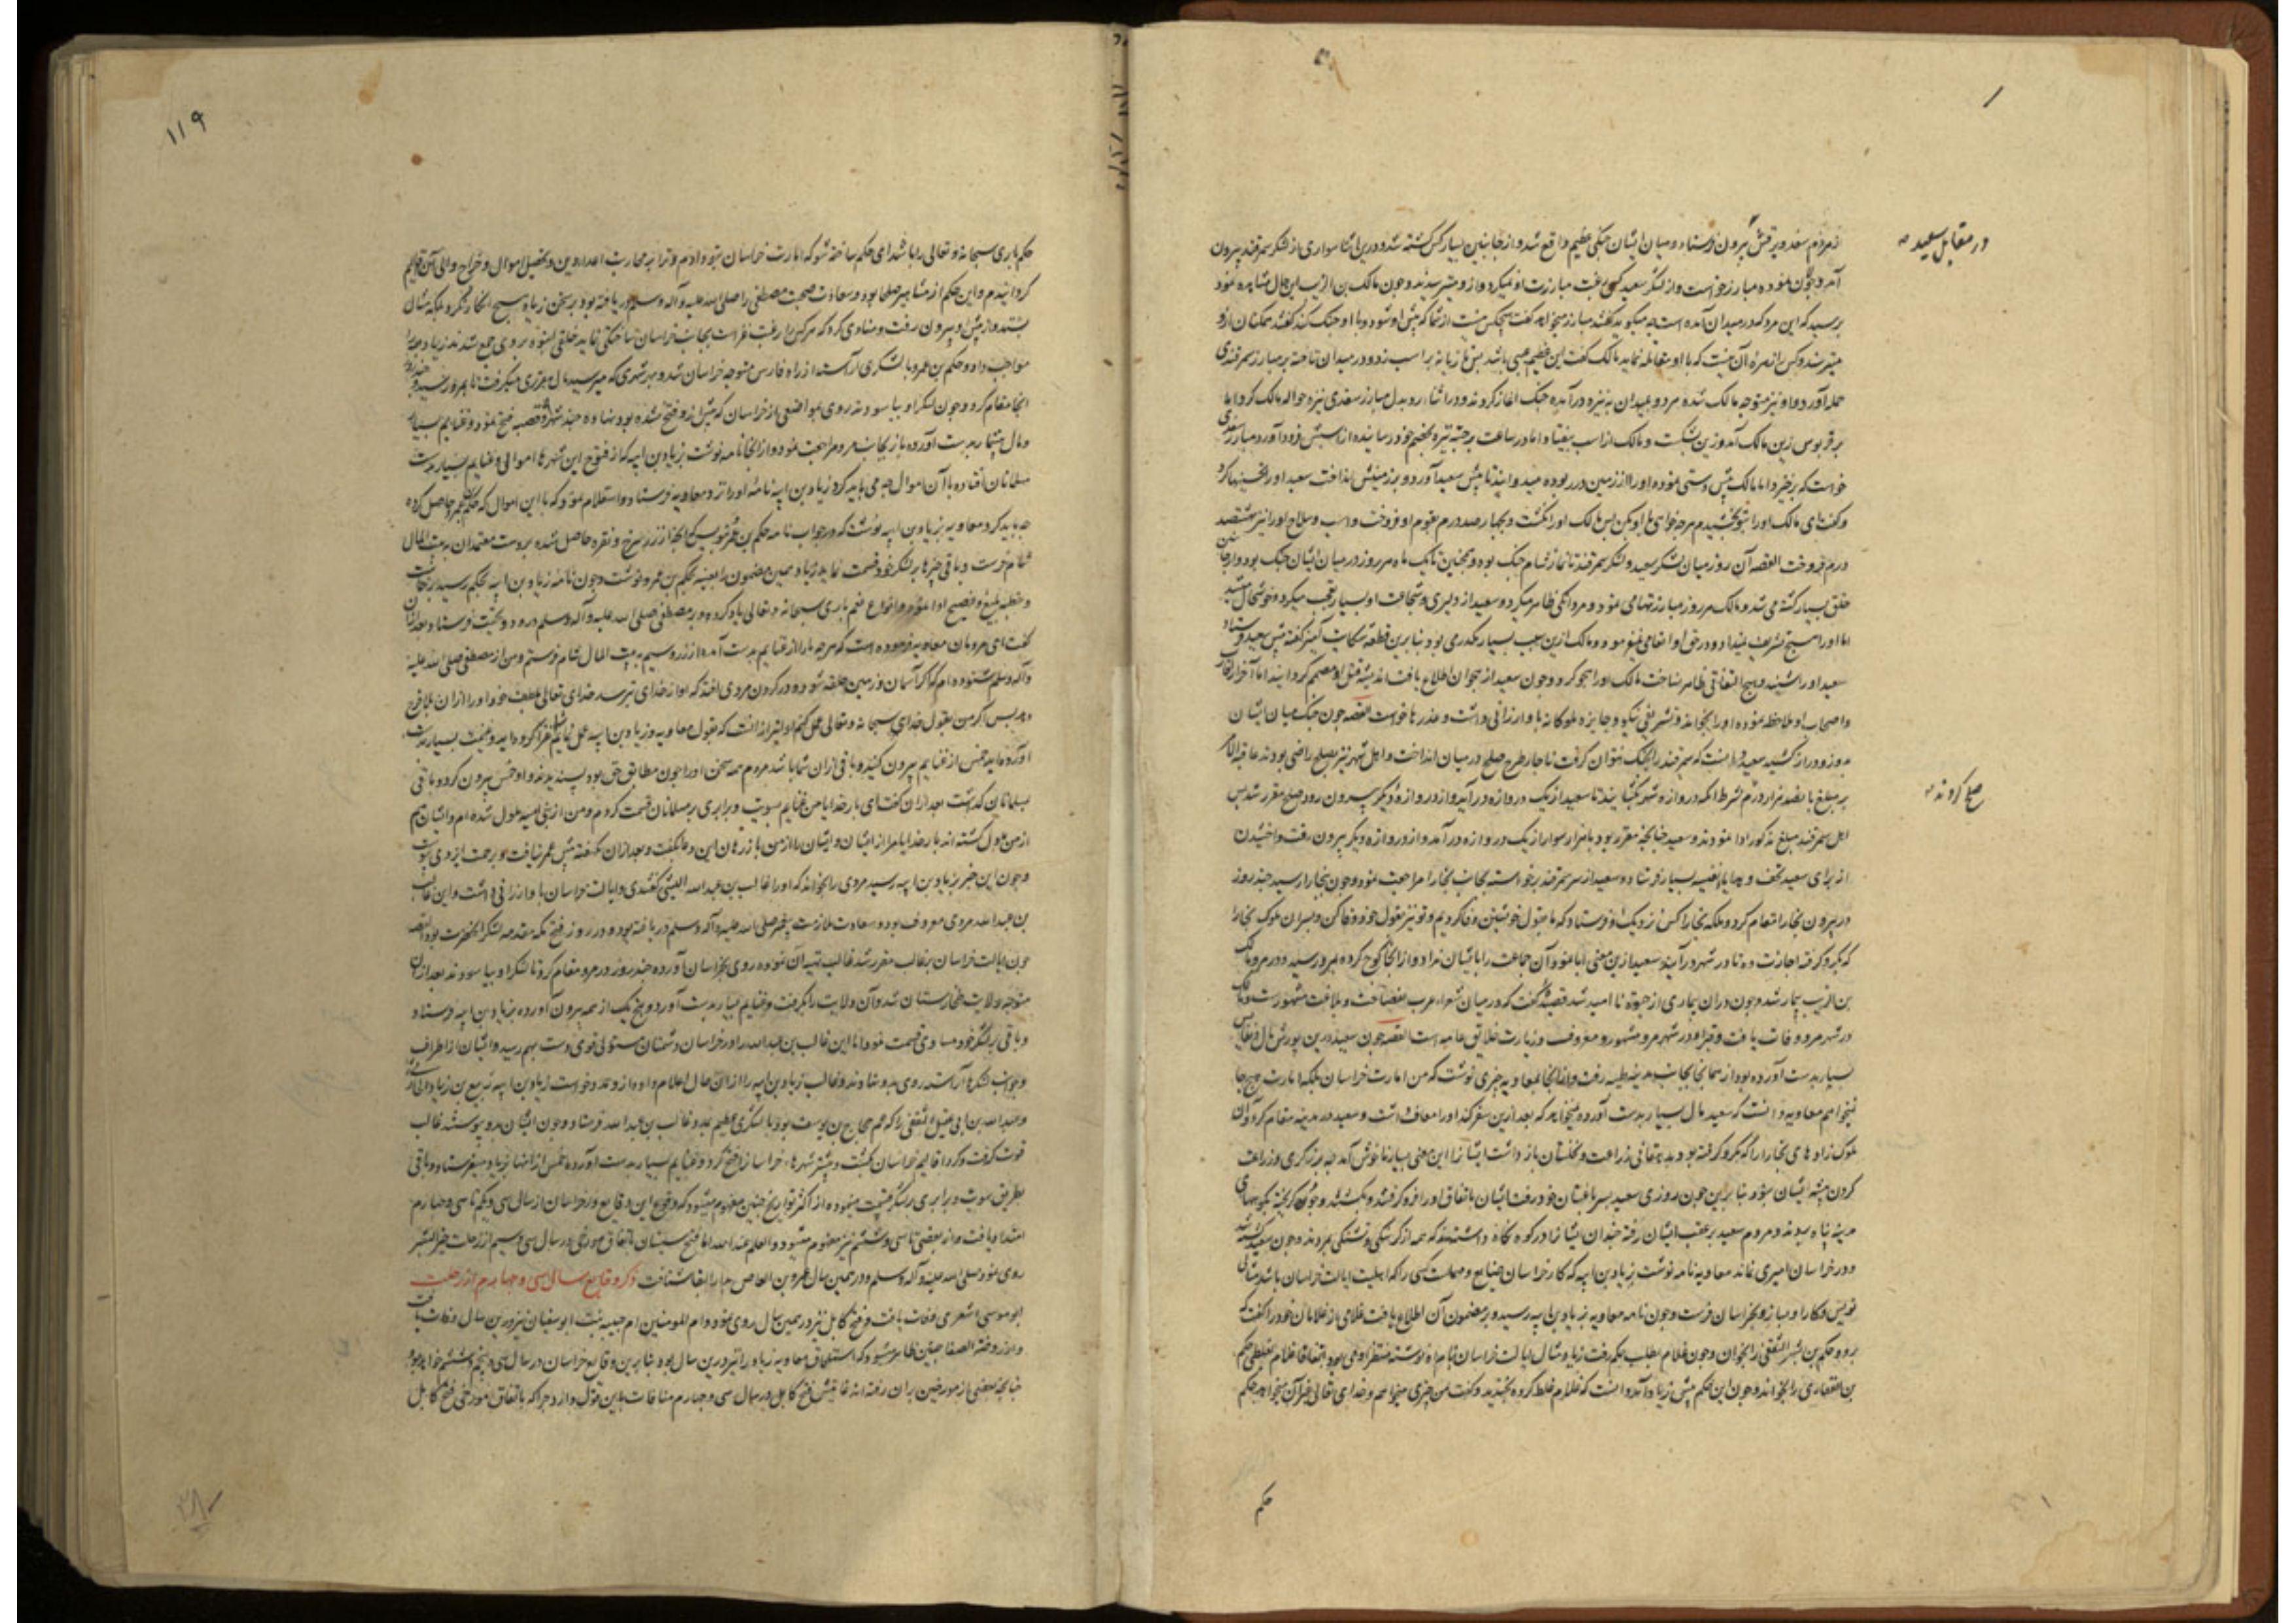 در مقابل سعید
از مردم سغد و برقش بیرون فرستاد و میان ایشان جنکی عظیم واقع شد و از جانبین بسیار کس کشته شد و درین اثنا سواری از لشکر سمرقند بیرون
آمد و جولان نموده مبارز خواست و از لشکر سعید کسی رغبت مبارزت او نمیکرد و از و میترسیدند و چون مالک بن الریب این حال مشاهده نمود
پرسید که این مرد که در میدان آمده است چه میکوید گفتند مبارز میخواهد گفت هیچکس نیست از شما که پیش او شود و با او جنک کند گفتند همکنان ازو
میترسند و کس را زهره آن نیست که با او مقابله نماید مالک گفت این عظیم عیبی باشد پس تازیانه بر اسب زد و در میدان تاخته بر مبارز سمرقندی
حمله آورد و او نیز متوجه مالک شده هر دو بمیدان به نیزه درآمده جنک اغاز کردند و در اثناء رد و بدل مبارز سغدی نیزه حواله مالک کرد اما
بر قربوس زین مالک آمد و زین بشکست و مالک از اسب بیفتاد اما در ساعت برجسته نیزه بخصم خود رسانیده از اسبش فرود آورد مبارز سغدی
خواست که برخیزد اما مالک پیش دستی نموده او را از زمین در ربوده میدوانید تا پیش سعید آورد و بر زمینش انداخت سعید او را تحسینها کرد
و گفت ای مالک او را بتو بخشیدم هرچه خواهی با او بکن پس مالک او را بکشت و بچهار صد درم
درم فروخت القصه آن روز میان لشکر سعید و لشکر سمرقند تا نماز شام جنک بود و همچنین تا یک ماه هر روز در میان ایشان جنک بود و از جانبین
خلق بسیار کشته می شد و مالک هر روز مبارزتها می نمود و مردانکی ظاهر میکرد و سعید از دلیری و شجاعت او بسیار تعجب میکرد و خوشحال میشد
اما او را هیچ تشریف نمیداد و در حق او انعامی نمیفرمود و مالک ازین سبب بسیار مکدر می بود بنابرین قطعه شکایت آمیز گفته پیش سعید فرستاد
سعید او را شنید و هیچ التفاتی ظاهر نساخت مالک او را هجو کرد و چون سعید از هجو آن اطلاع یافت اندیشه قتل او مصمم کردانید اما آخر
و اصحاب او ملاحظه نموده او را بخواند و تشریفی نیکو و جایزه ملوکانه باو ارزانی داشت و عذرها خواست القصه چون جنک میان ایشان
بروز دراز کشید سعید دانست که سمرقند را بجنک نتوان کرفت ناچار طرح صلح در میان انداخت و اهل شهر نیز بصلح راضی بودند عاقبة الامر
صلح کردند
بر مبلغ پانصد هزار درم بشرط آنکه دروازه شهر بکشایند تا سعید از یک دروازه درآید و از دروازه دیکر بیرون رود صلح مقرر شد پس
اهل سمرقند مبلغ مذکور ادا نمودند و سعید چنانچه مقرر بود با هزار سوار از یک دروازه درآمد و از دروازه دیکر بیرون رفت
از برای سعید تحف و هدایا نفیسه بسیار فرستاد و سعید از سر سمرقند برخواسته بجانب بخارا مراجعت نمود و چون ببخارا رسید چند روز
در بیرون بخارا مقام کرد و ملکه بخارا کس نزدیک او فرستاد که ما بقول خویشتن وفا کردیم و تو نیز بقول خود وفا کن و پسران ملوک بخارا
که بکرو کرفته اجازت ده تا در شهر درآیند سعید ازین معنی ابا نمود و آن جماعت را بایشان نداد و از آنجا کوچ کرده بمرو رسید و در مرو مالک
بن الریب بیمار شد و چون در آن بیماری از حیوة نا امید شد قصیده گفت که در میان شعراء عرب بفصاحت و بلاغت مشهورست و مالک
در شهر مرو وفات یافت و قبر او در شهر مرو مشهور و معروف و زیارت خلایق عامه است القصه چون سعید درین یورش مال و نفایس
بسیار بدست آورده بود از همانجا بجانب مدینه طیبه رفت و از آنجا بمعاویه چیزی نوشت که من امارت خراسان بلکه امارت هیچ جا
نمیخواهم معاویه دانست که سعید مال بسیار بدست آورده نمیخواهد که بعد ازین سفر کند او را معاف داشت و سعید در مدینه مقام کرد و آن
ملوک زاده های بخارا را که بکرو کرفته بود بدهقانی زراعت و نخلستان بازداشت ایشانرا این معنی بسیار ناخوش آمد چه برزکری و زراعت
کردن پیشه ایشان نبود بنابرین چون روزی سعید بسر باغستان خود رفت ایشان باتفاق او را فرو کرفتند و بکشتند و خود کریخته بکوههای
مدینه پناه بردند و مردم سعید بر عقب ایشان رفته چندان ایشانرا در کوه نکاه داشتند که همه از کرسنکی و تشنکی بمردند و چون سعید کشته شد
و در خراسان امیری نماند معاویه نامه نوشت بزیاد بن ابیه که کار خراسان ضایع و مهملست کسی را که اهلیت ایالت خراسان باشد مثالی
نویس و کار او بساز و بخراسان فرست و چون نامه معاویه بزیاد بن ابیه رسید و بر مضمون آن اطلاع یافت غلامی از غلامان خود را گفت که
برو و حکم بن بشر الثقفی را بخوان و چون غلام بطلب حکم رفت زیاد مثال ایالت خراسان بنام او نوشته منتظر او می بود اتفاقا غلام بغلطی حکم
بن الغفاری را بخواند و چون این حکم پیش زیاد درآمد دانست که غلام غلط کرده بخندید و گفت من چیزی میخواهم و خدای تعالی غیر آن میخواهد حکم
حکم
۱۱۹
حکم باری سبحانه و تعالی را باشد ای حکم ساخته شو که امارت خراسان بتو دادم و ترا به محاربت اعداء دین و تحصیل اموال و خراج والی آن اقالیم
کردانیدم و این حکم از مشاهیر صلحا بود و سعادت صحبت مصطفی را صلی الله علیه و آله وسلم دریافته بود بر سخن زیاد هیچ انکار نکرد بلکه مثال
بستد و از پیش او بیرون رفت و منادی کرد که هر کس را رغبت غزاست بجانب خراسان ساختکی نماید خلقی انبوه بر وی جمع شدند زیاد همه را
مواجب داد و حکم بن عمرو با لشکری آراسته از راه فارس متوجه خراسان شد و بهر شهری که میرسید مال مقرری میکرفت تا بمرو رسید و چند روز
آنجا مقام کرد و چون لشکر او بیاسودند روی بمواضعی از خراسان که پیش ازو فتح نشده بود نهاده چند شهر و قصبه فتح نمود و غنایم بسیار
و مال بیشمار بدست آورده باز بجانب مرو مراجعت نمود و از آنجا نامه نوشت بزیاد بن ابیه که از فتوح این شهرها اموال و غنایم بسیار بدست
مسلمانان افتاده با آن اموال چه می باید کرد زیاد بن ابیه نامه او را نزد معاویه فرستاد و استعلام نمود که با این اموال که حکم بن عمرو حاصل کرده
چه باید کرد معاویه بزیاد بن ابیه نوشت که در جواب نامه حکم بن عمرو بنویس که آنچه از زر سرخ و نقره حاصل شده بدست معتمدان به بیت المال
شام فرست و باقی چیزها بر لشکر خود قسمت نماید زیاد همین مضمون را بعینه بحکم بن عمرو نوشت و چون نامه زیاد بن ابیه بحکم رسید برخاست
و خطبه بلیغ و فصیح ادا نمود و انواع نعم باری سبحانه و تعالی یاد کرده و بر مصطفی صلی الله علیه و آله وسلم درود و تحیت فرستاد بعد از آن
گفت ای مردمان معاویه فرموده است که هرچه ما را از غنایم بدست آمده از زر و سیم به بیت المال شام فرستم و من از مصطفی صلی الله علیه
و آله وسلم شنوده ام که اگر آسمان و زمین حلقه شود و در کردن مردی افتد که او از خدای ترسد خدای تعالی بلطف خود او را از آن بلا فرج
دهد پس اکر من بقول خدای سبحانه و تعالی عمل کنم اولیتر از آنست که بقول معاویه و زیاد بن ابیه عمل نمایم شما غزا کرده اید و غنیمت بسیار بدست
آورده اید خمس از غنایم بیرون کنید و باقی از آن شما باشد مردم همه سخن او را چون مطابق حق بود پسندیدند و او خمس بیرون کرد و باقی
بمسلمانان کذاشت بعد از آن گفت ای بار خدایا من غنایم بسویت و برابری بر مسلمانان قسمت کردم و من از بنی امیه ملول شده ام و ایشان هم
از من ملول کشته اند بار خدایا مرا از ایشان و ایشان را از من باز رهان این دعا بگفت و بعد از آن یکهفته بیش عمر نیافت و برحمت ایزدی پیوست
و چون این خبر بزیاد بن ابیه رسید مردی را بخواند که او را غالب بن عبدالله اللیثی گفتندی و ایالت خراسان باو ارزانی داشت و این غالب
بن عبدالله مردی معروف بود و سعادت ملازمت پیغمبر صلی الله علیه و آله وسلم دریافته بود و در روز فتح مکه مقدمه لشکر آنحضرت بود القصه
چون ایالت خراسان بر غالب مقرر شد غالب تهیه آن نموده روی بخراسان آورده چند روز در مرو مقام کرد تا لشکر او بیاسودند بعد از آن
متوجه ولایت طخارستان شد و آن ولایت را بکرفت و غنایم بسیار بدست آورد و پنج یک از همه بیرون آورده بزیاد بن ابیه فرستاد
و باقی بر لشکر خود مساوی قسمت نمود اما این غالب بن عبدالله را در خراسان دشمنان مستولی قوی دست بهم رسید و ایشان از اطراف
و جوانب لشکرها آراسته روی بدو نهادند و غالب زیاد بن ابیه را از آن حال اعلام داد و ازو مدد خواست زیاد بن ابیه ربیع بن زیاد
و عبدالله بن ابی عقیل الثقفی را که عم حجاج بن یوسف بود با لشکری عظیم بمدد غالب بن عبدالله فرستاد و چون ایشان بدو پیوستند غالب
قوت گرفت و کرد اقالیم خراسان بکشت و بیشتر شهرهاء خراسانرا فتح کرد و غنایم بسیار بدست آورده خمس از آنها بزیاد میفرستاد و باقی
بطریق سویت و برابری بر لشکر قسمت مینمود و از اکثر تواریخ چنین مفهوم میشود که وقوع این وقایع در خراسان از سال سی و یکم تا سی و چهارم
امتداد یافت و از بعضی تا سی و ششم نیز معلوم میشود والعلم عند الله اما فتح سیستان باتفاق مورخین در سال سی و سیم از رحلت خیر البشر
روی نمود صلی الله علیه و آله وسلم و در همین سال عمرو بن العاص بدار البقا شتافت ذکر وقایع سال سی و چهارم از رحلت
ابو موسی اشعری وفات یافت و فتح کابل نیز در همین سال روی نمود و ام المومنین ام حبیبه بنت ابوسفیان نیز درین سال وفات یافت
و از روضة الصفا چنین ظاهر میشود که استلحاق معاویه زیاد را نیز درین سال بوده بنابرین وقایع خراسان در سال سی و پنجم و ششم خواهد بود
چنانچه بعضی از مورخین بران رفته اند غایتش فتح کابل در سال سی و چهارم منافات باین قول دارد چرا که باتفاق مورخین فتح کابل